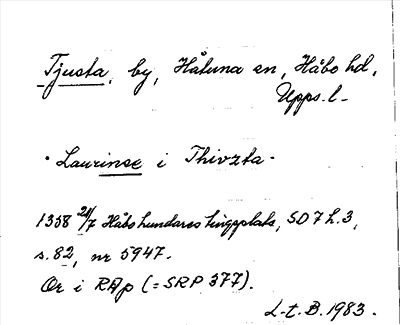 Tjusta, by, Håtuna sn, Håbo hd,
Upps. l.
· Laurinse i Thivzta ·
1358 21/7 Håbohundares tingplats, SD 7 h. 3,
s. 82, nr 5947.
Or i RAp (= SRP 377).
L-t. B. 1983.